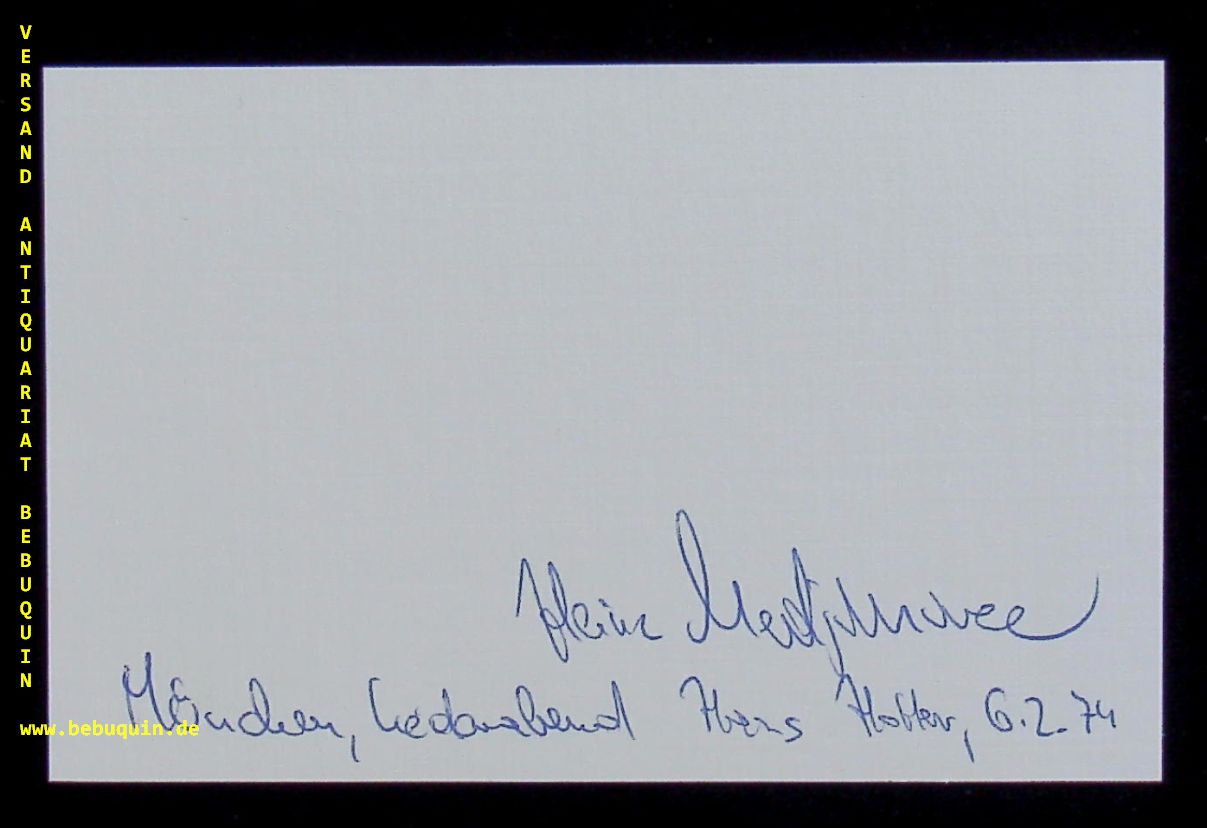 VERSAND ANTIQUARIAT BEBUQUIN
Heinz
München, Liederabend Hans Hotter, 6.2.74
www.bebuquin.de